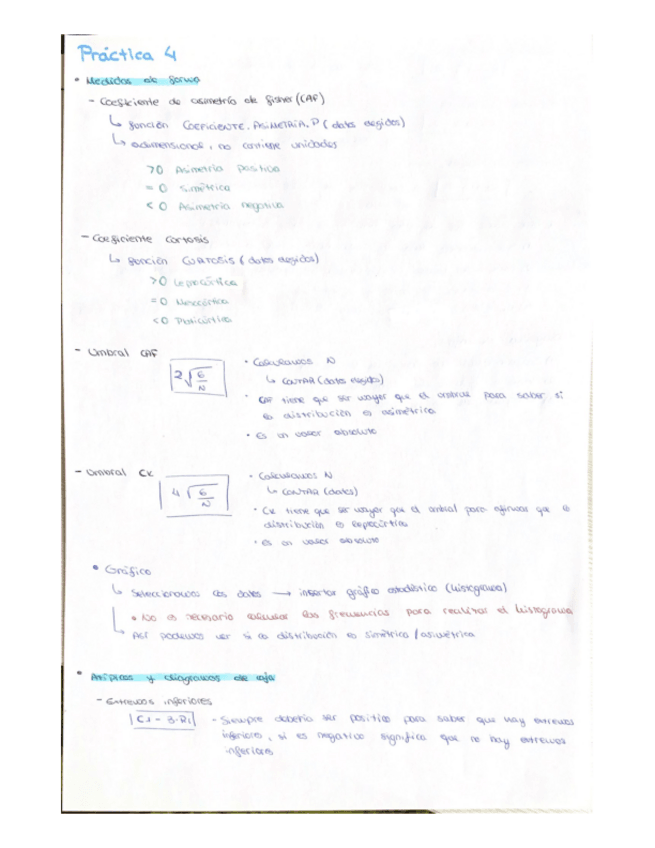 Práctica 4
• Medidas de forma
- Coeficiente de asimetría de fisher (CAF)
↳ función COEFICIENTE.ASIMETRIA.P (datos elegidos)
↳ adimensional, no contiene unidades
>0 Asimetría positiva
=0 Simétrica
<0 Asimetría negativa
- Coeficiente Curtosis
↳ función CURTOSIS (datos elegidos)
>0 Leptocúrtica
=0 Mesocúrtica
<0 Platicúrtica
- Umbral CAF
2√6/N
• Calculamos N
↳ CONTAR (datos elegidos)
• CAF tiene que ser mayor que el umbral para saber si
la distribución es asimétrica
• Es un valor absoluto
- Umbral CK
4√6/N
• Calculamos N
↳ CONTAR (datos)
• CK tiene que ser mayor que el umbral para afirmar que la
distribución es leptocúrtica
• es un valor absoluto
• Gráfico
↳ Seleccionamos los datos → insertar gráfico estadístico (histograma)
• No es necesario calcular las frecuencias para realizar el histograma
↳ Así podemos ver si la distribución es simétrica / asimétrica
• Atípicos y diagramas de caja
- Extremos inferiores
C1 - 3·RI
- Siempre debería ser positivo para saber que hay extremos
inferiores, si es negativo significa que no hay extremos
inferiores